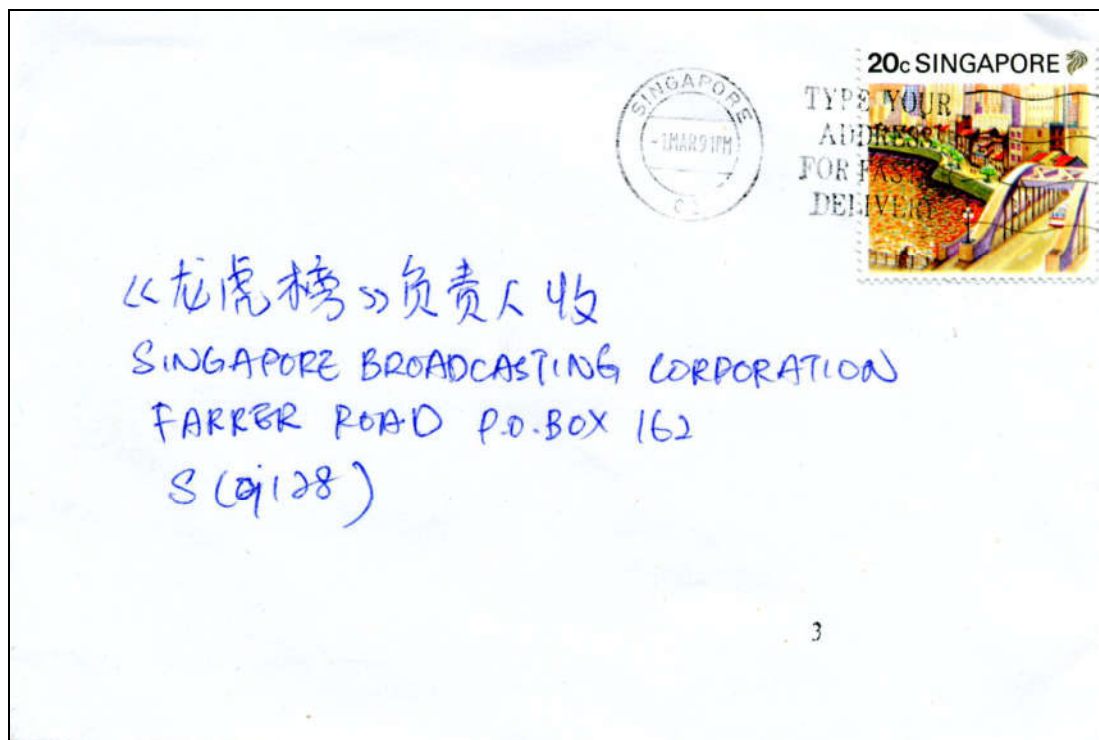 20c SINGAPORE
SINGAPORE
-1MAR91PM
TYPE YOUR
ADDRESS
FOR FAST
DELIVERY
《龙虎榜》负责人收
SINGAPORE BROADCASTING CORPORATION
FARRER ROAD P.O. BOX 162
S (9128)
3